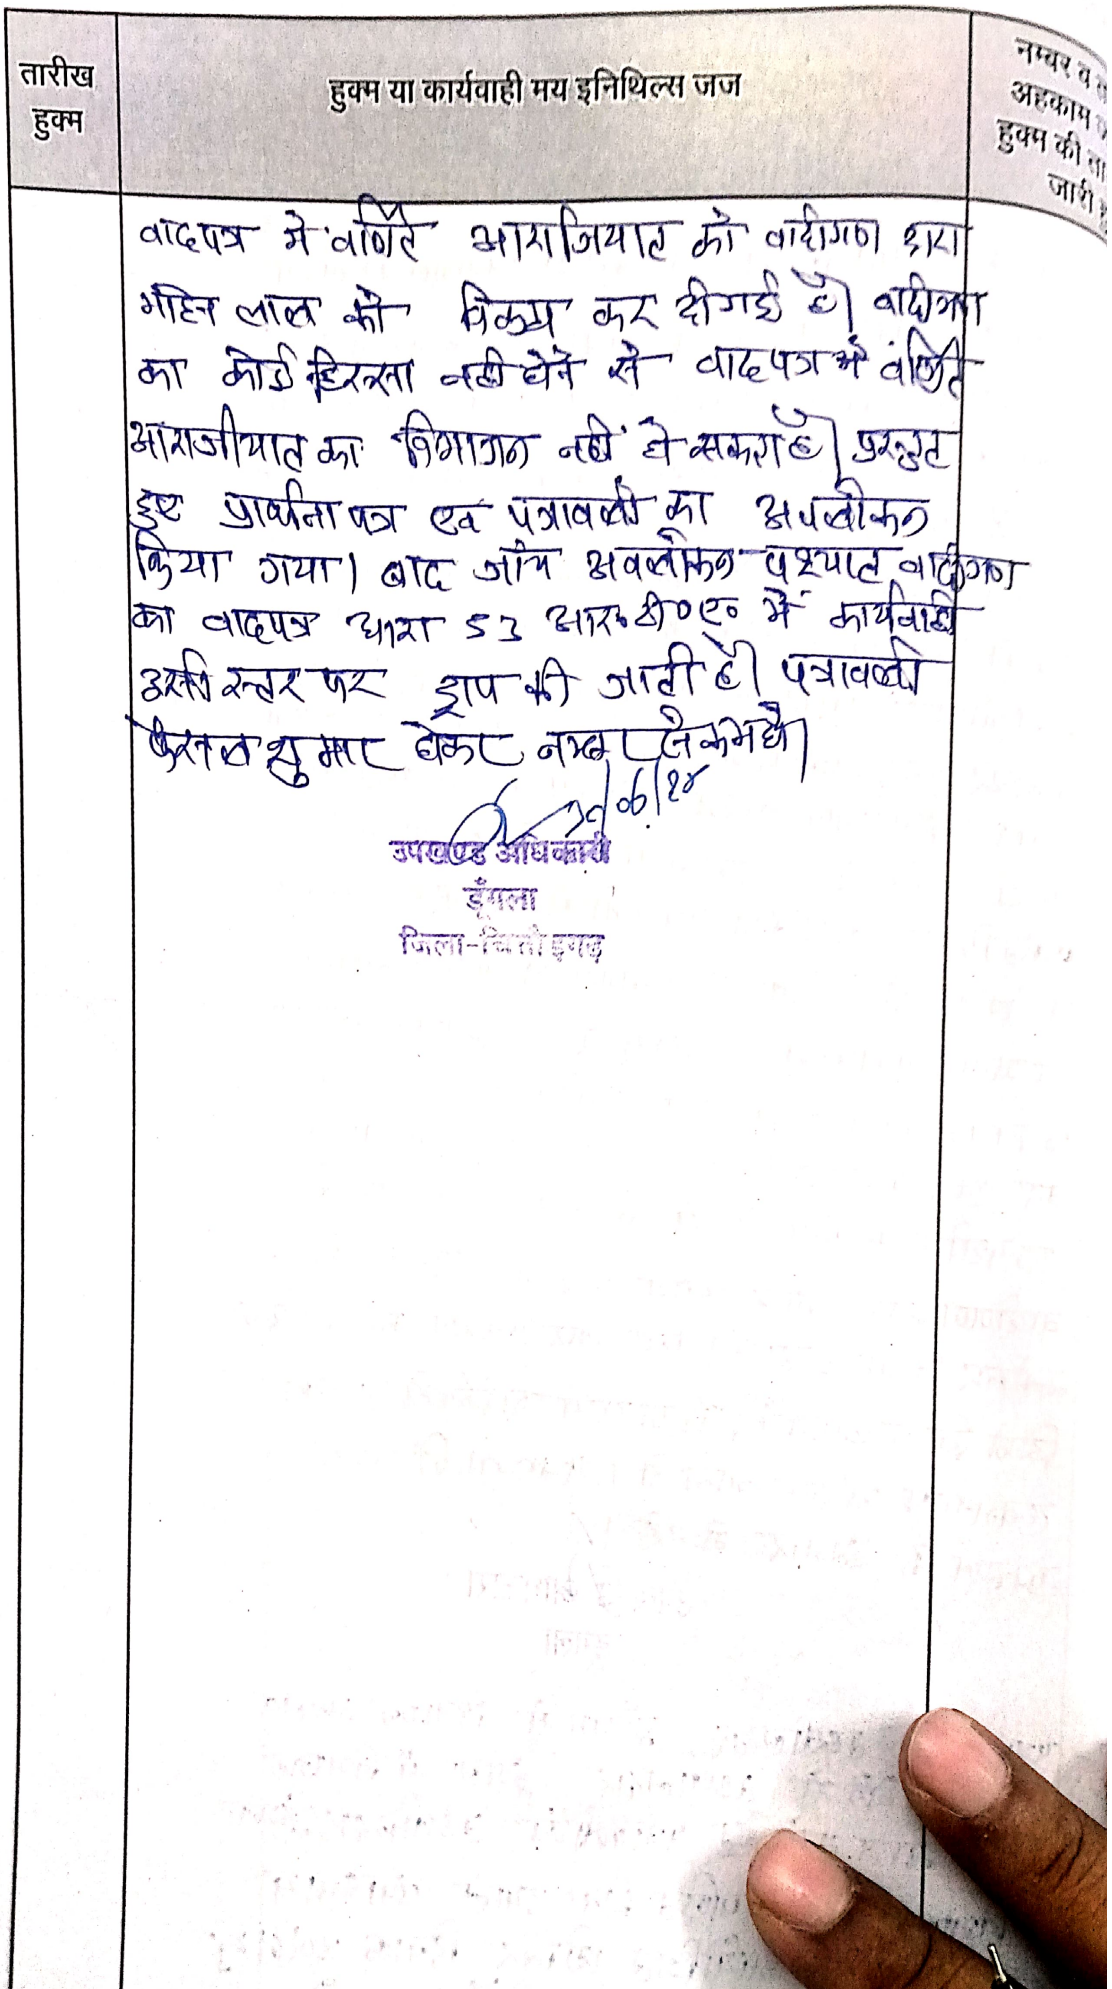 तारीख
हुक्म
हुक्म या कार्यवाही मय इनिथिल्स जज
नम्बर व
अहकाम
हुक्म की ता
जारी
वादपत्र मे वर्णित आराजियात को वादीगण द्वारा
लाल को विक्रय कर दी गई है। वादीगण
का कोई हिस्सा नही होने से वादपत्र मे वर्णित
आराजीयात का विभाजन नहीं हो सकता है। प्रस्तुत
हुए प्रार्थना पत्र एवं पत्रावली का अवलोकन
किया गया। बाद जाँच अवलोकन पश्चात वादीगण
का वादपत्र धारा 53 आर०टी०ए० में कार्यवाही
इसी स्तर पर ड्राप की जाती है। पत्रावली
फैसल शुमार होकर नम्बर से कम हो।
उपखण्ड अधिकारी
डूँगला
जिला-चित्तौड़गढ़